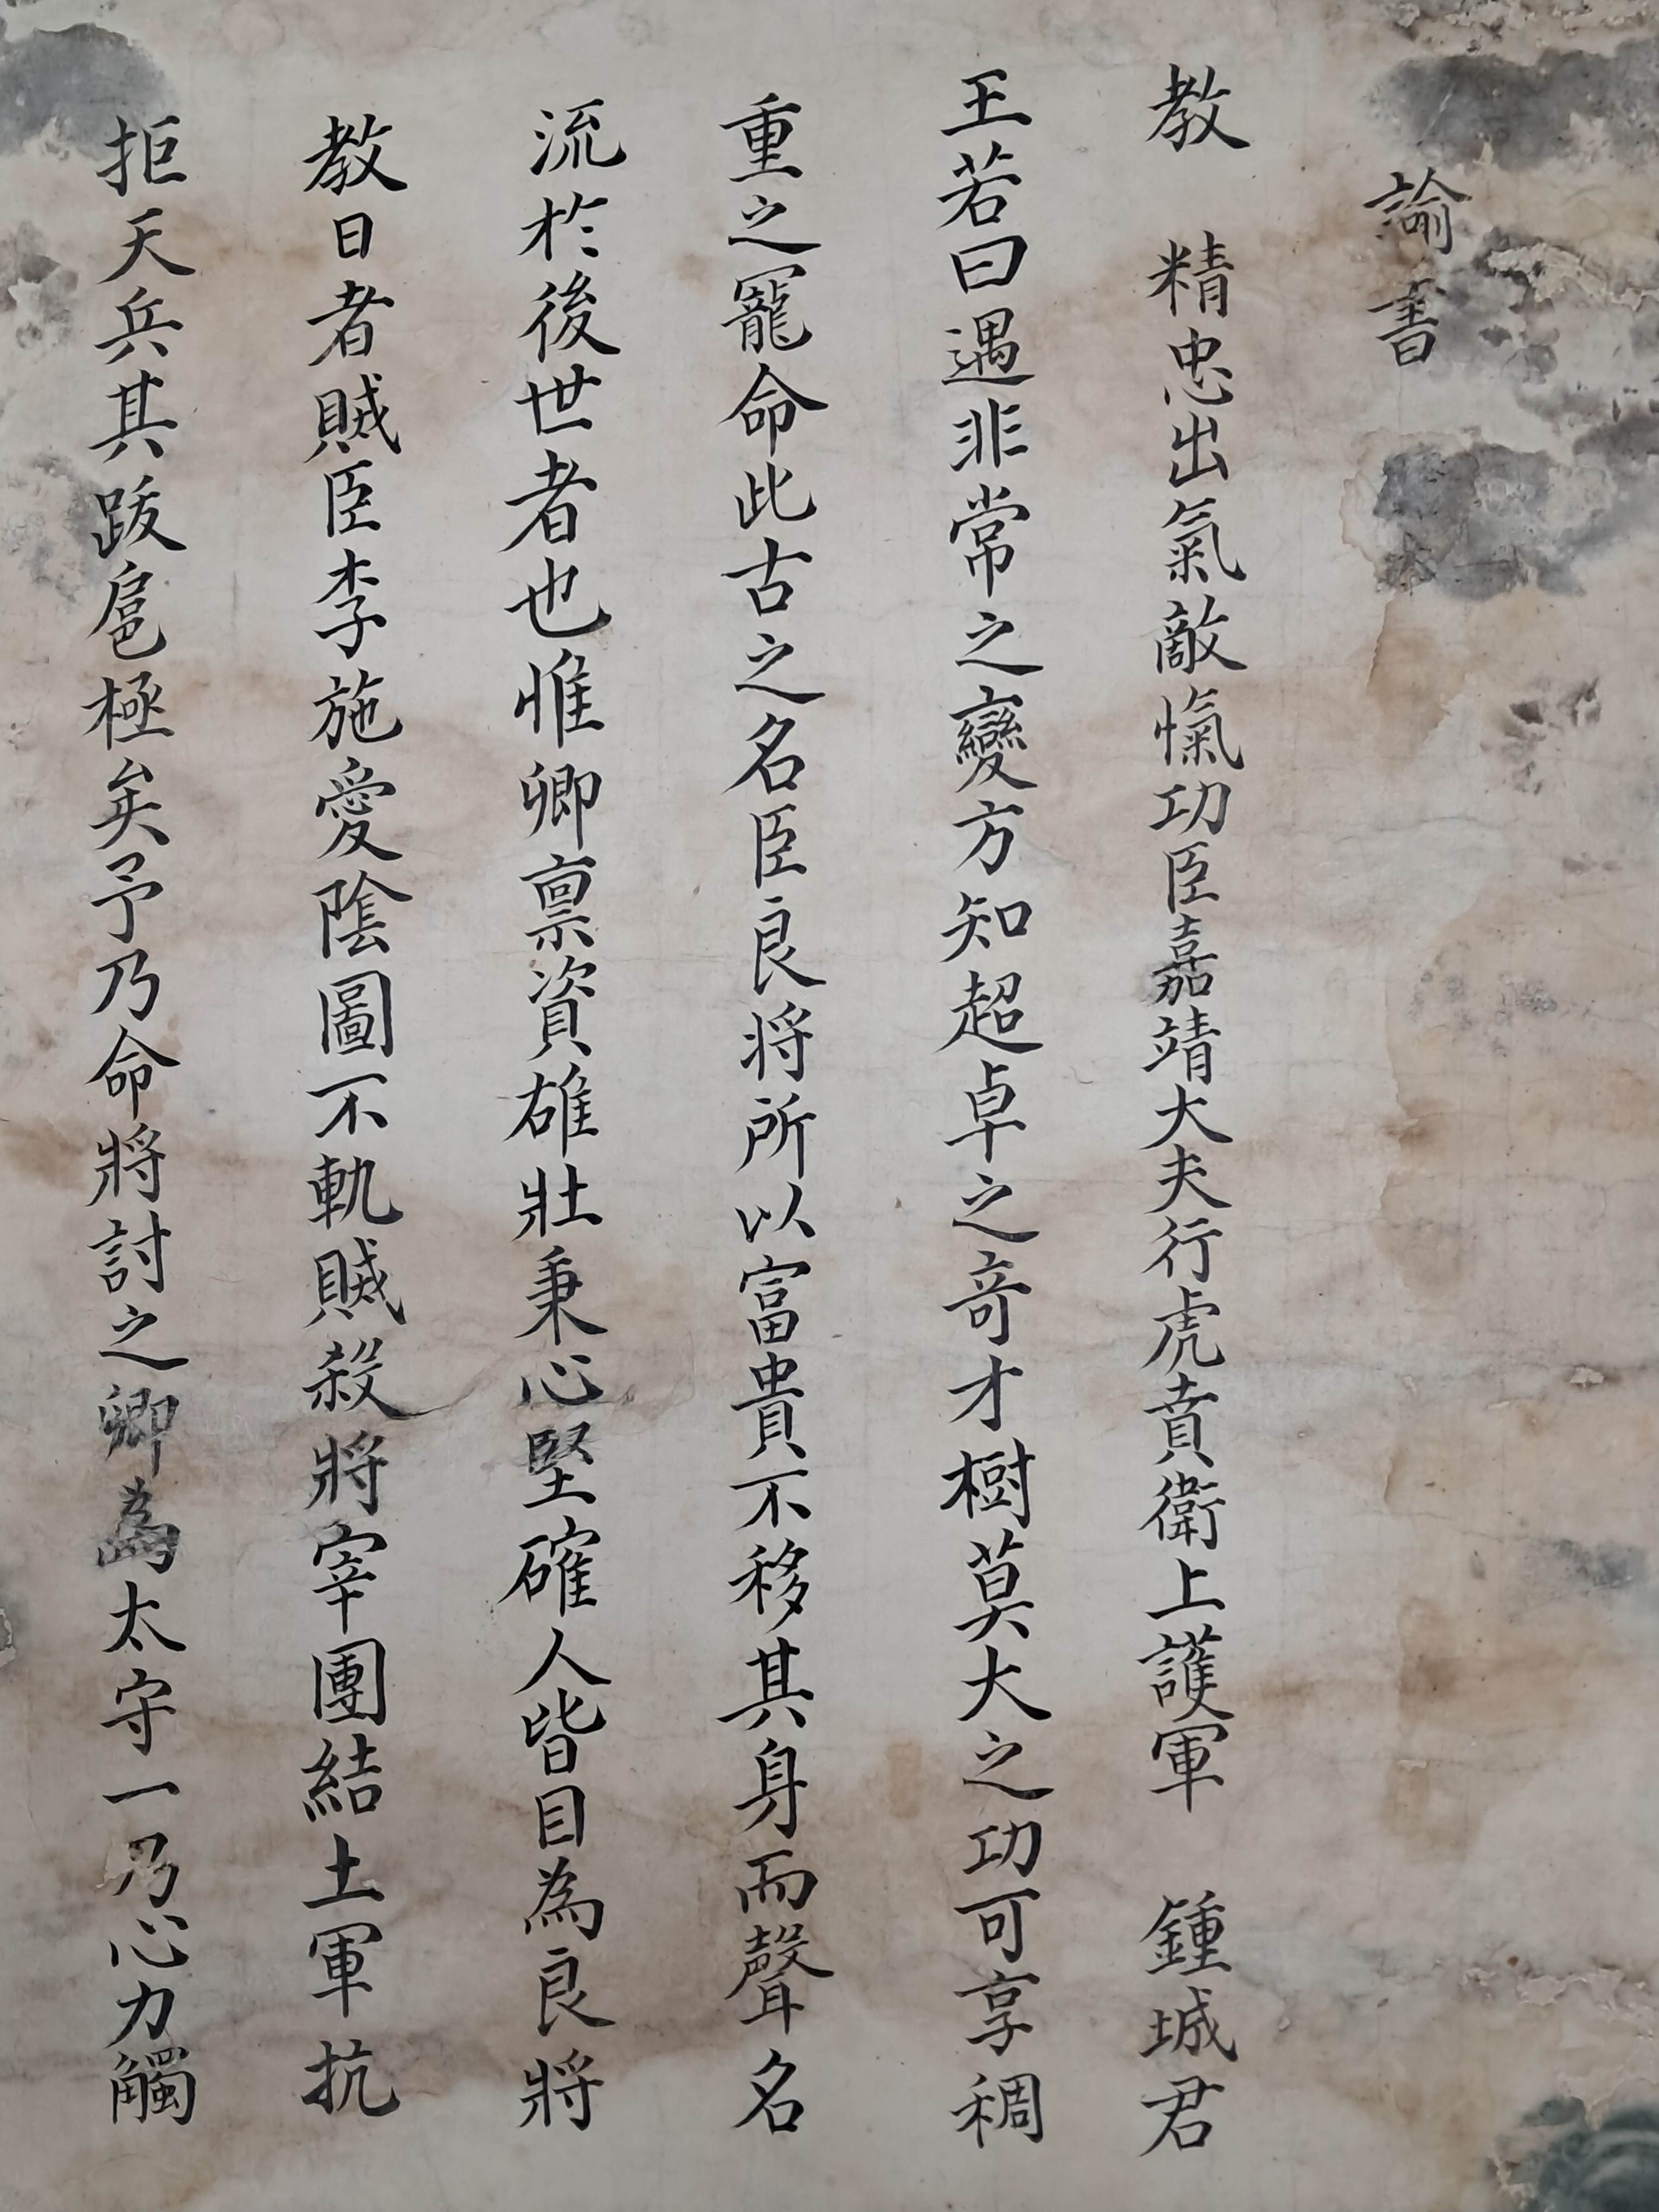 諭書
教 精忠出氣敵愾功臣嘉靖大夫行虎賁衛上護軍 鍾城君
王若曰遇非常之變方知超卓之竒才樹莫大之功可享稠
重之寵命此古之名臣良将所以富貴不移其身而聲名
流於後世者也惟卿禀資雄壯秉心堅確人皆目為良將
教日者賊臣李施愛陰圖不軌賊殺將宰團結土軍抗
拒天兵其跋扈極矣予乃命將討之卿為太守一乃心力觸